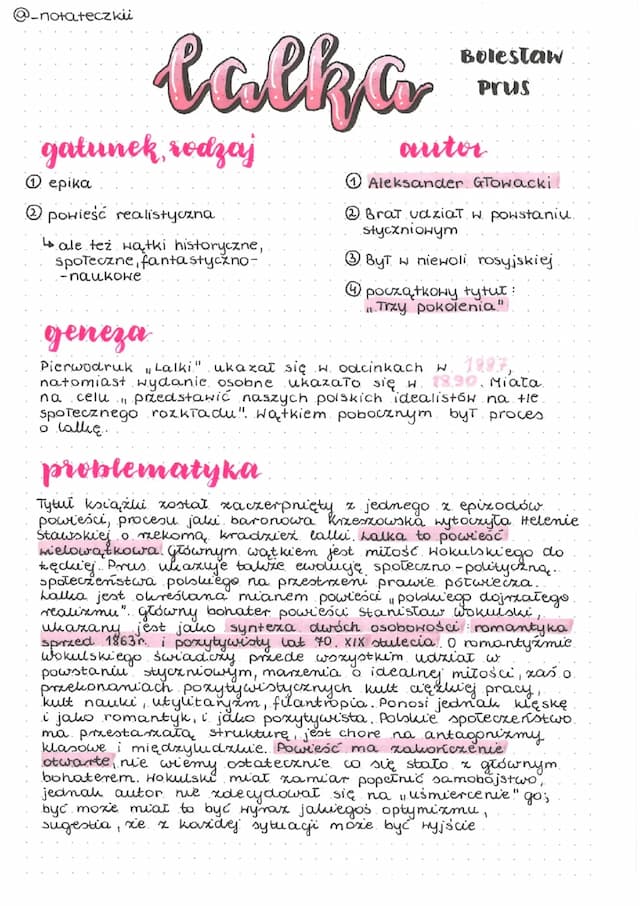 @_notateczkii
lalka
Bolesław
Prus
gatunek, rodzaj
① epika
② powieść realistyczna
↳ ale też wątki historyczne,
społeczne, fantastyczno-
-naukowe
autor
① Aleksander Głowacki
② Brał udział w powstaniu
styczniowym
③ Był w niewoli rosyjskiej
④ początkowy tytuł:
„Trzy pokolenia"
geneza
Pierwodruk „Lalki" ukazał się w odcinkach w 1887,
natomiast wydanie osobne ukazało się w 1890. Miała
na celu „przedstawić naszych polskich idealistów na tle
społecznego rozkładu". Wątkiem pobocznym był proces
o lalkę.
problematyka
Tytuł książki został zaczerpnięty z jednego z epizodów
powieści, procesu jaki baronowa Krzeszowska wytoczyła Helenie
Stawskiej o rzekomą kradzież lalki. Lalka to powieść
wielowątkowa. Głównym wątkiem jest miłość Wokulskiego do
Łęckiej. Prus ukazuje także ewolucję społeczno-polityczną
społeczeństwa polskiego na przestrzeni prawie półwiecza.
Lalka jest określana mianem powieści „polskiego dojrzałego
realizmu". Główny bohater powieści Stanisław Wokulski,
ukazany jest jako synteza dwóch osobowości: romantyka
sprzed 1863r. i pozytywisty lat 70. XIX stulecia. O romantyźmie
Wokulskiego świadczy przede wszystkim udział w
powstaniu styczniowym, marzenia o idealnej miłości, zaś o
przekonaniach pozytywistycznych kult ciężkiej pracy,
kult nauki, utylitaryzm, filantropia. Ponosi jednak klęskę
i jako romantyk, i jako pozytywista. Polskie społeczeństwo
ma przestarzałą strukturę, jest chore na antagonizmy
klasowe i międzyludzkie. Powieść ma zakończenie
otwarte, nie wiemy ostatecznie co się stało z głównym
bohaterem. Wokulski miał zamiar popełnić samobójstwo,
jednak autor nie zdecydował się na „uśmiercenie" go;
być może miał to być wyraz jakiegoś optymizmu,
sugestia, że z każdej sytuacji może być wyjście